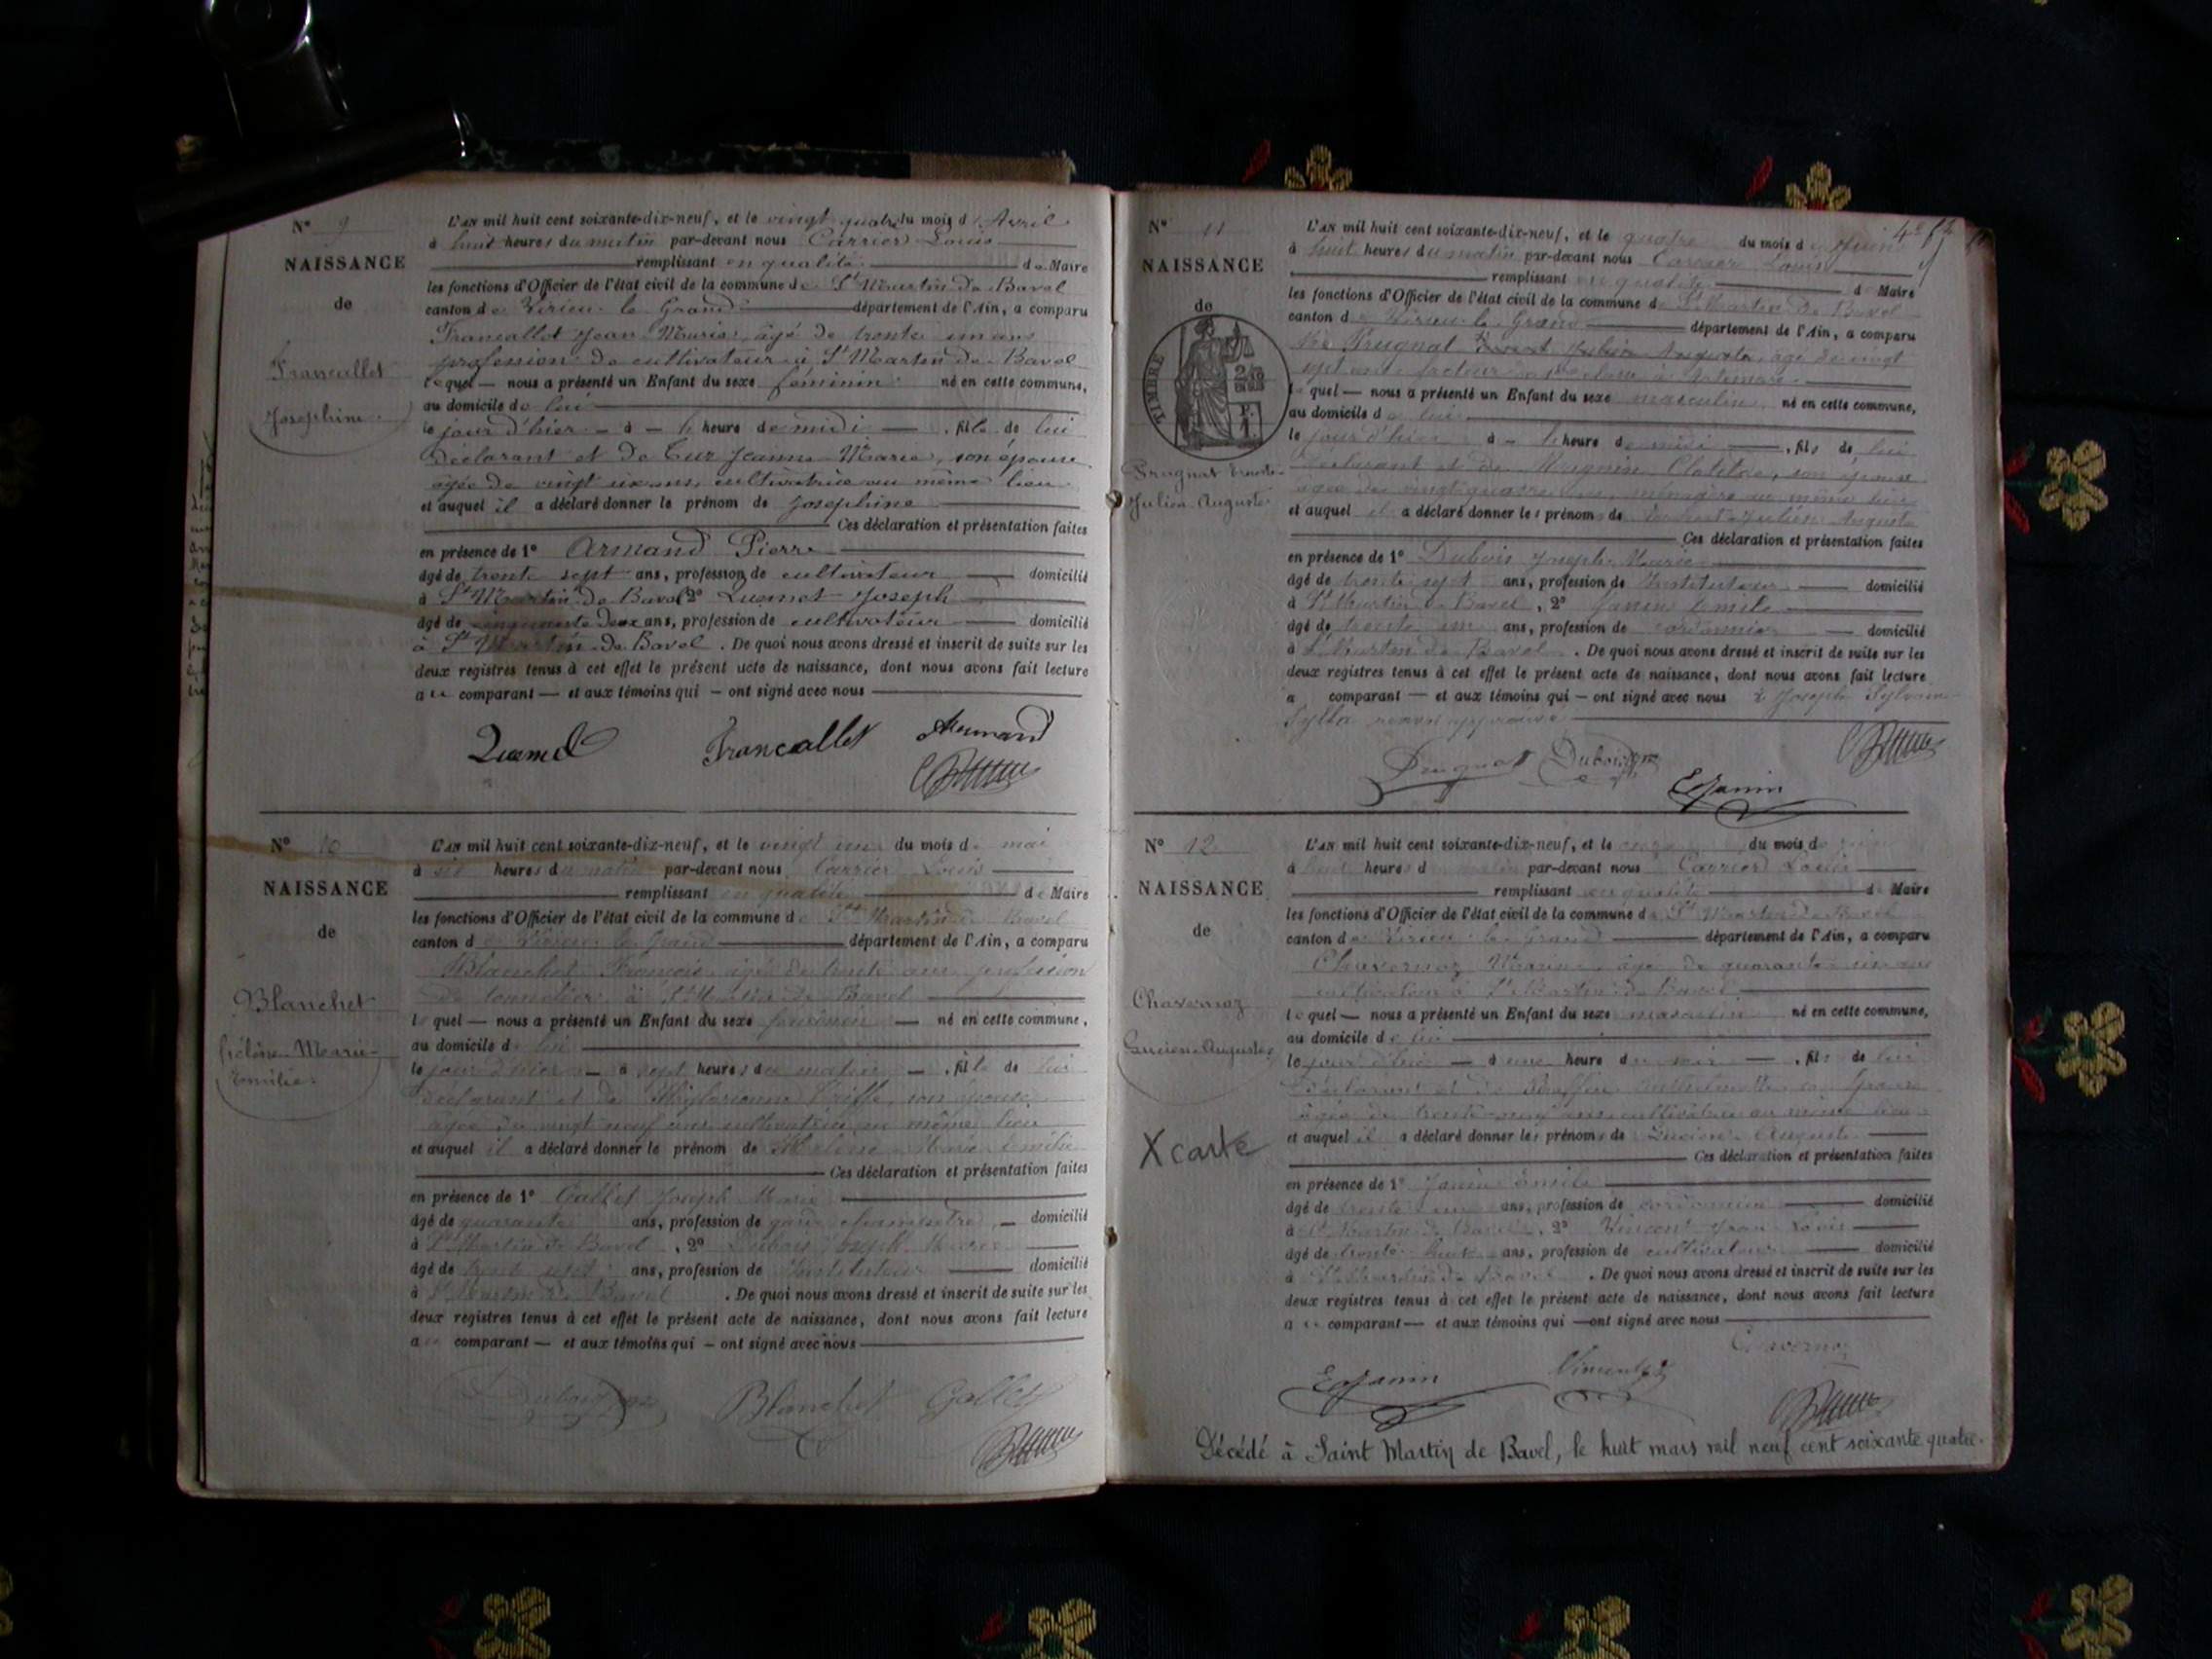 N° 9
NAISSANCE
de
Francallet
Josephine
L'AN mil huit cent soixante-dix-neuf, et le vingt quatre du mois d'Avril
à huit heures du matin par-devant nous Carrier Louis
remplissant en qualité de Maire
les fonctions d'Officier de l'état civil de la commune de St Martin de Bavel
canton de Virieu le Grand département de l'Ain, a comparu
Francallet Jean Marie, âgé de trente un ans
profession de cultivateur à St Martin de Bavel
lequel — nous a présenté un Enfant du sexe féminin né en cette commune,
au domicile de lui
le jour d'hier — à — heure de midi —, fille de lui
déclarant et de Jeanne Marie, son épouse
agée de vingt ans, cultivatrice au même lieu
et auquel il a déclaré donner le prénom de Josephine
Ces déclaration et présentation faites
en présence de 1° Armand Pierre
âgé de trente sept ans, profession de cultivateur domicilié
à St Martin de Bavel 2° Joseph
âgé de cinquante deux ans, profession de cultivateur domicilié
à St Martin de Bavel. De quoi nous avons dressé et inscrit de suite sur les
deux registres tenus à cet effet le présent acte de naissance, dont nous avons fait lecture
au comparant — et aux témoins qui — ont signé avec nous
Francallet Armand
N° 10
NAISSANCE
de
Blanchet
Marie
Emilie
L'AN mil huit cent soixante-dix-neuf, et le vingt un du mois de mai
à heures du matin par-devant nous Carrier Louis
remplissant en qualité de Maire
les fonctions d'Officier de l'état civil de la commune de St Martin de Bavel
canton de Virieu le Grand département de l'Ain, a comparu
Blanchet François, âgé de trente ans profession
de tonnelier à St Martin de Bavel
lequel — nous a présenté un Enfant du sexe féminin — né en cette commune,
au domicile de lui
le jour d'hier — à sept heures du matin —, fille de lui
déclarant et de son épouse
âgée de vingt neuf ans cultivatrice au même lieu
et auquel il a déclaré donner le prénom de Marie Emilie
Ces déclaration et présentation faites
en présence de 1° Callet Joseph Marie
âgé de quarante ans, profession de garde champêtre — domicilié
à St Martin de Bavel, 2° Dubois Joseph Marie
âgé de trente sept ans, profession de Instituteur domicilié
à St Martin de Bavel. De quoi nous avons dressé et inscrit de suite sur les
deux registres tenus à cet effet le présent acte de naissance, dont nous avons fait lecture
au comparant — et aux témoins qui — ont signé avec nous
Blanchet Callet
N° 11
NAISSANCE
de
TIMBRE
Prugnat Ernest
Julien Auguste
L'AN mil huit cent soixante-dix-neuf, et le quatre du mois de Juin
à huit heures du matin par-devant nous Carrier Louis
remplissant en qualité de Maire
les fonctions d'Officier de l'état civil de la commune de St Martin de Bavel
canton de Virieu le Grand département de l'Ain, a comparu
Prugnat âgé de vingt
sept ans facteur à Artemare
lequel — nous a présenté un Enfant du sexe masculin né en cette commune,
au domicile de lui
le jour d'hier à — heure de midi —, fils de lui
déclarant et de Clotilde, son épouse
agée de vingt quatre ans, ménagère au même lieu
et auquel il a déclaré donner les prénoms de Ernest Julien Auguste
Ces déclaration et présentation faites
en présence de 1° Dubois Joseph Marie
âgé de trente sept ans, profession de Instituteur domicilié
à St Martin de Bavel, 2° Janin Emile
âgé de trente un ans, profession de cordonnier domicilié
à St Martin de Bavel. De quoi nous avons dressé et inscrit de suite sur les
deux registres tenus à cet effet le présent acte de naissance, dont nous avons fait lecture
a comparant — et aux témoins qui — ont signé avec nous Joseph Sylvain
Prugnat Dubois
E Janin
N° 12
NAISSANCE
de
Chavernoz
Lucien Auguste
X carte
L'AN mil huit cent soixante-dix-neuf, et le du mois de
à heures d par-devant nous Carrier Louis
remplissant en qualité de Maire
les fonctions d'Officier de l'état civil de la commune de St Martin de Bavel
canton de Virieu le Grand département de l'Ain, a comparu
Chavernoz âgé de quarante ans
cultivateur à St Martin de Bavel
lequel — nous a présenté un Enfant du sexe masculin né en cette commune,
au domicile de lui
le jour d'hier — à une heure du soir —, fils de lui
déclarant et de
agée de trente neuf ans cultivatrice au même lieu
et auquel il a déclaré donner les prénoms de Lucien Auguste
Ces déclaration et présentation faites
en présence de 1° Janin Emile
âgé de trente un ans, profession de cordonnier domicilié
à St Martin de Bavel, 2° Vincent Jean Louis
âgé de trente huit ans, profession de cultivateur domicilié
à St Martin de Bavel. De quoi nous avons dressé et inscrit de suite sur les
deux registres tenus à cet effet le présent acte de naissance, dont nous avons fait lecture
au comparant — et aux témoins qui — ont signé avec nous
Chavernoz
E Janin Vincent
Décédé à Saint Martin de Bavel, le huit mars mil neuf cent soixante quatre.